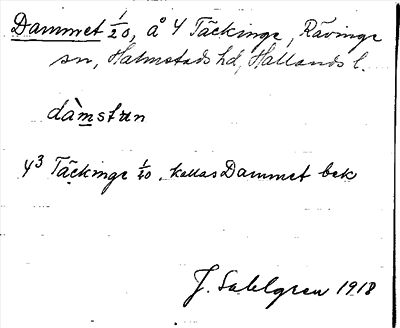 Dammet 1/20, å 4 Täckinge, Rävinge
sn, Halmstads hd, Hallands l.
dàmstᴜn
4³ Täckinge 1/20, kallas Dammet bek
J. Sahlgren 1918